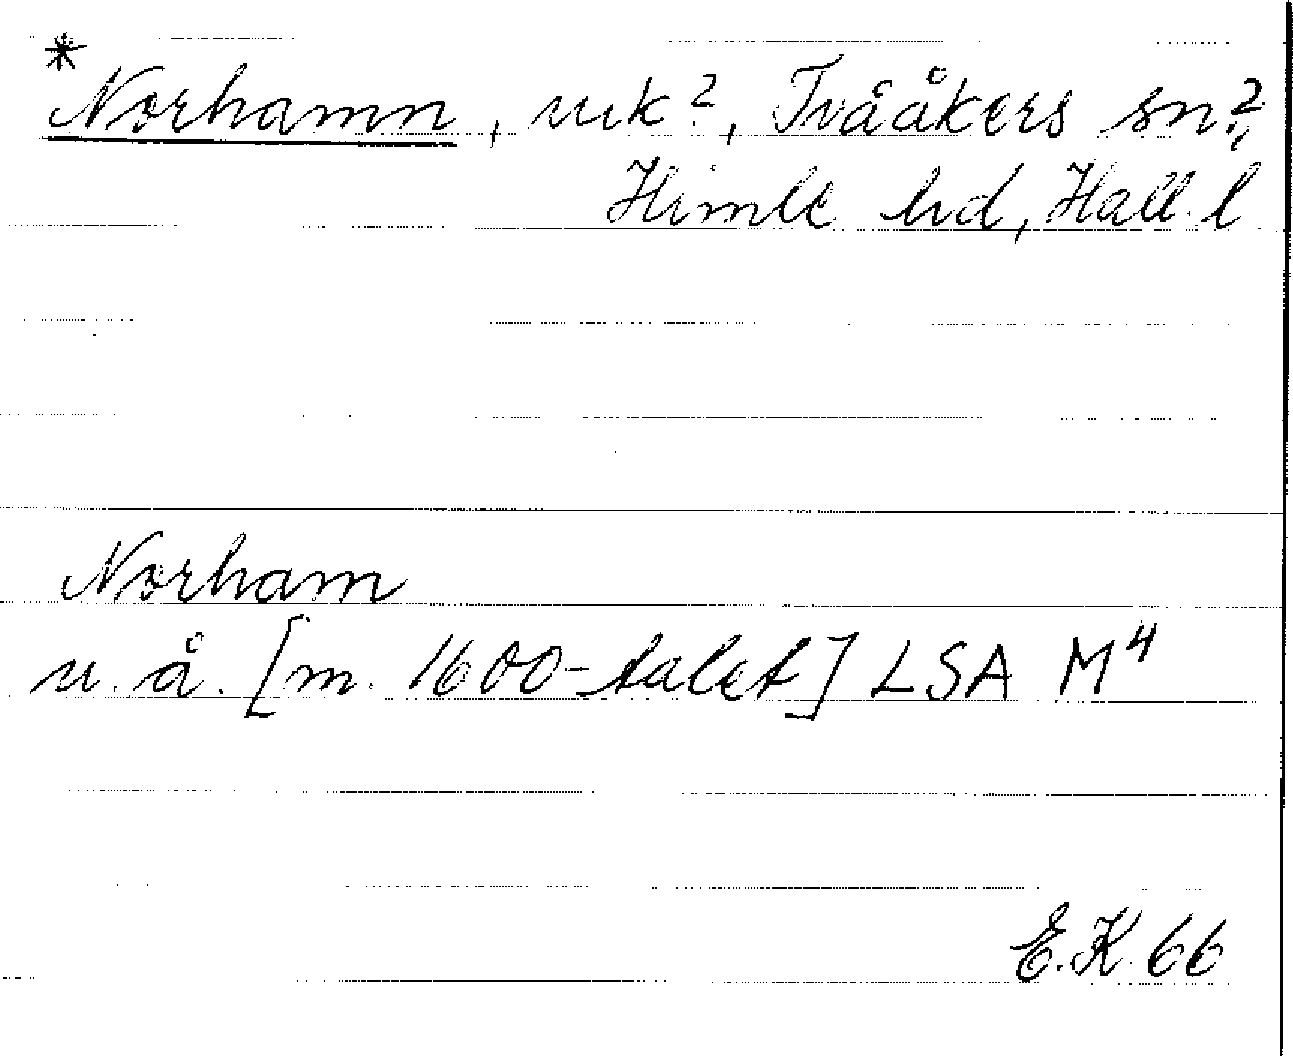 *Norhamn, vik?, Tvååkers sn?,
Himle hd, Hall. l
Norham
u. å. [m. 1600-talet] LSA M4
E.K. 66